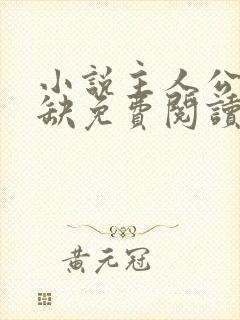 小說主人公
缺免費閱讀
黃元冠